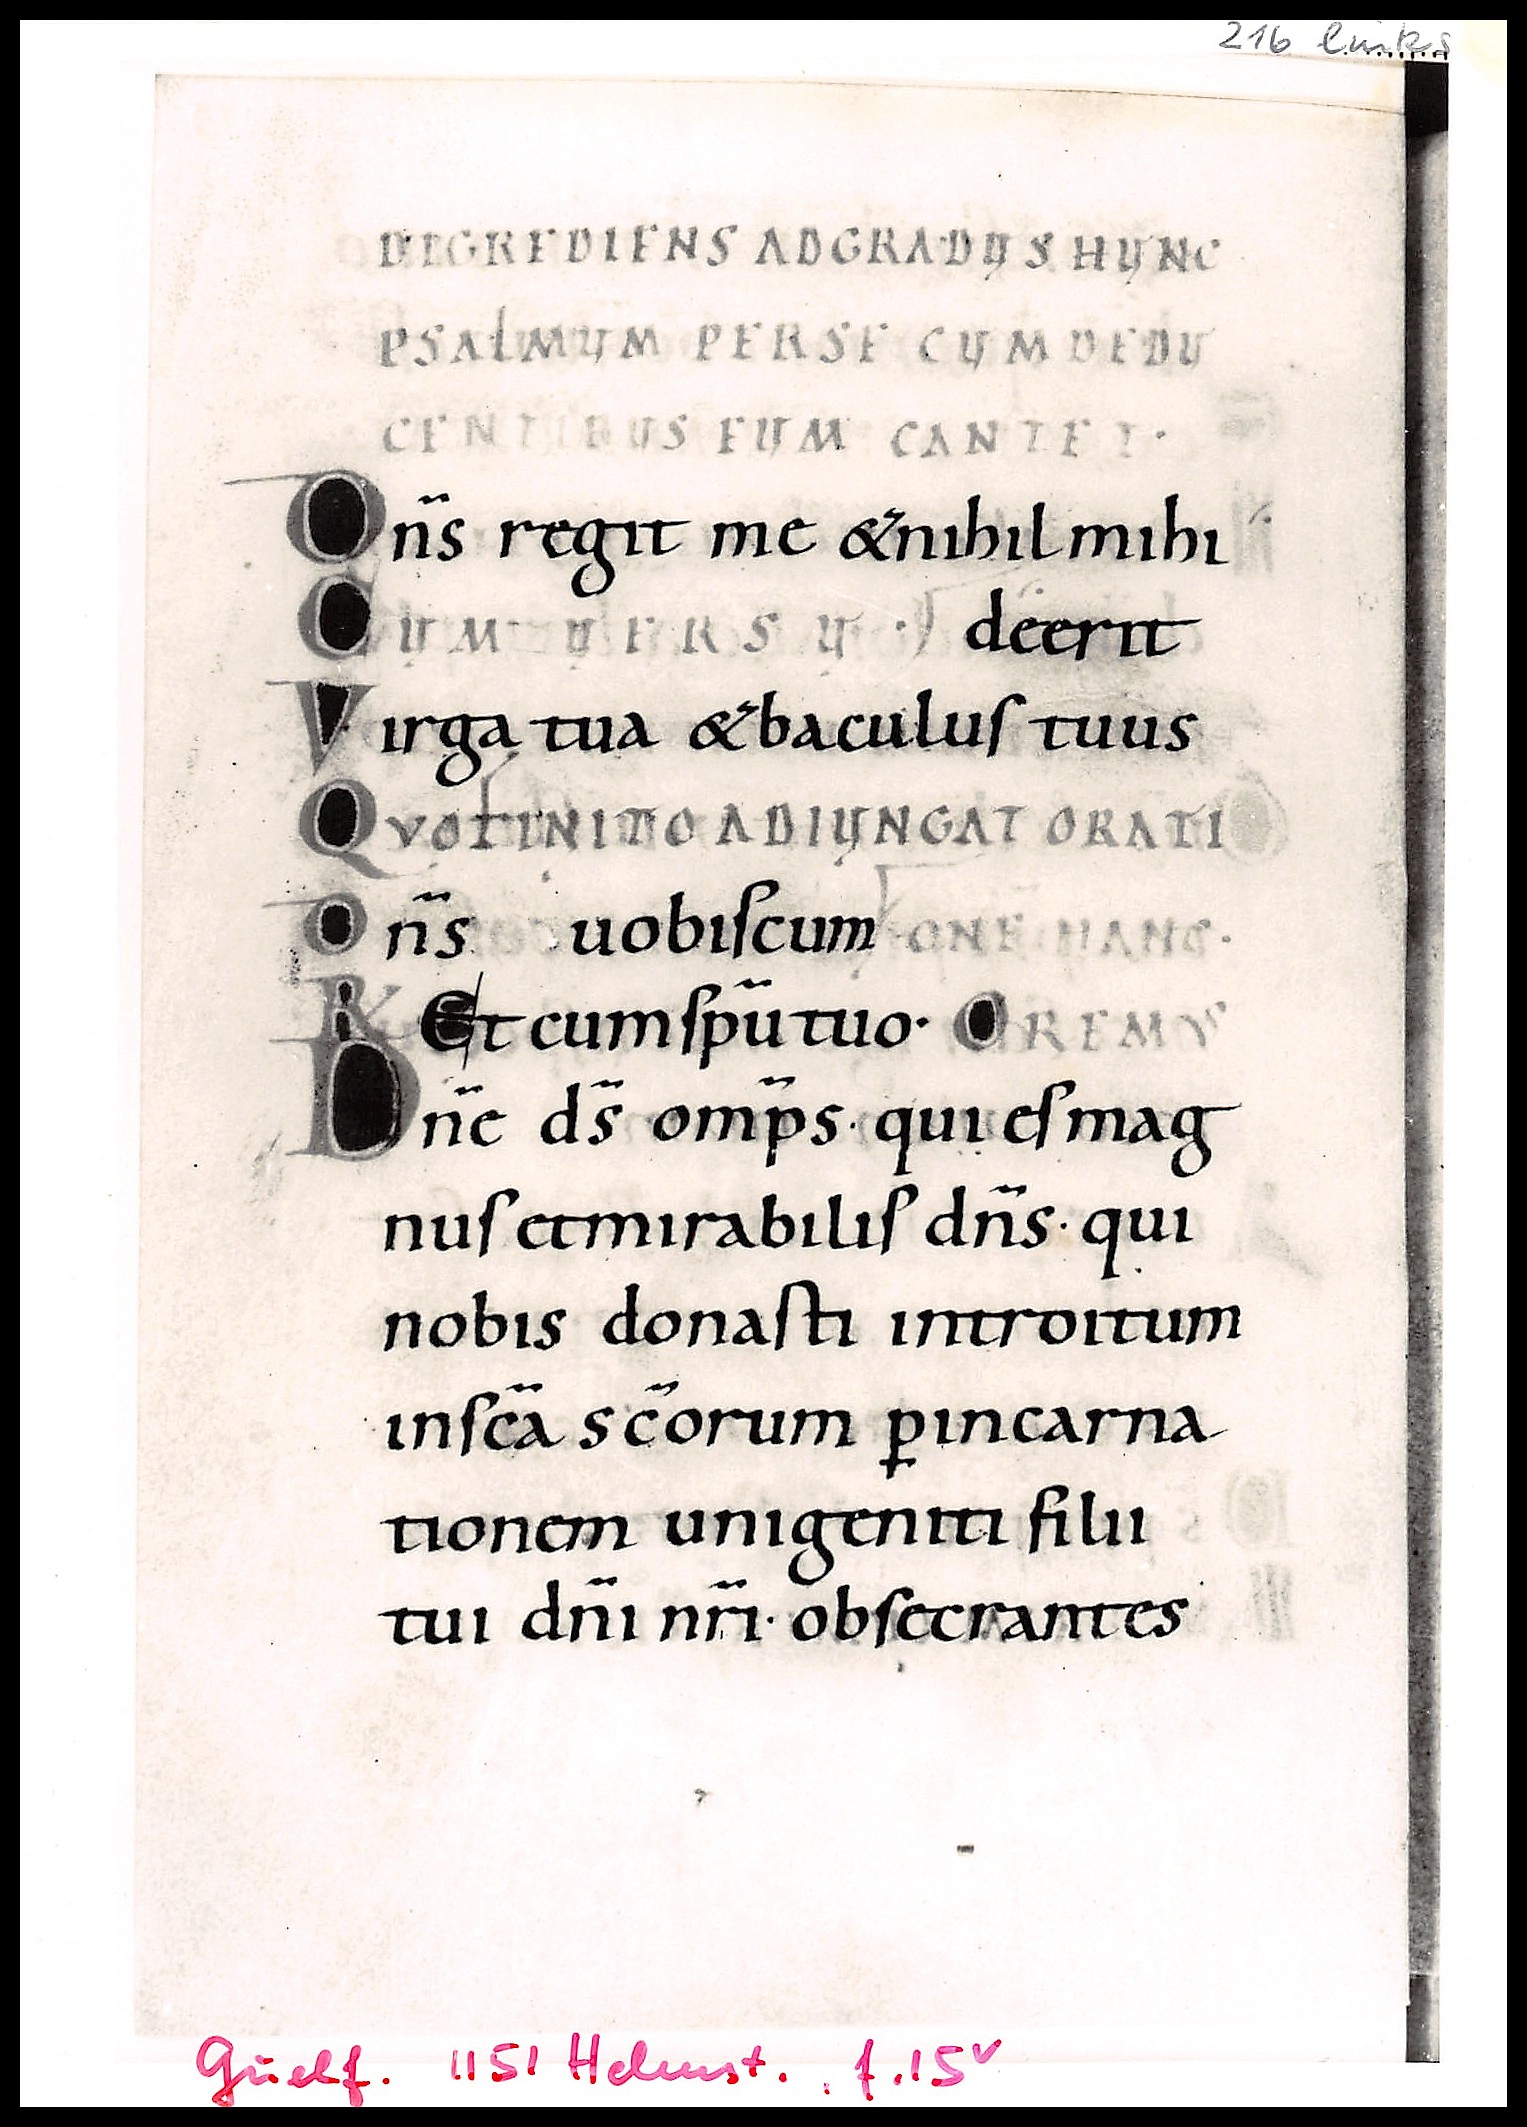 216 links
DEGREDIENS ADGRADUS HUNC
PSALMUM PERSE CUM DEDU
CENTIBUS EUM CANTET·
Dn̄s regit me & nihil mihi
CUM VERSU · deerit
Virga tua & baculus tuus
QUO FINITO ADIUNGAT ORATI
Dn̄s uobiscum ONE HANC·
R Et cum sp̄u tuo· OREMUS
Dn̄e ds̄ omp̄s· qui es mag
nus et mirabilis dn̄s· qui
nobis donasti introitum
in sc̄a sc̄orum ꝑ incarna
tionem unigeniti filii
tui dn̄i nr̄i· obsecrantes
Guelf. 1151 Helmst. f.15v